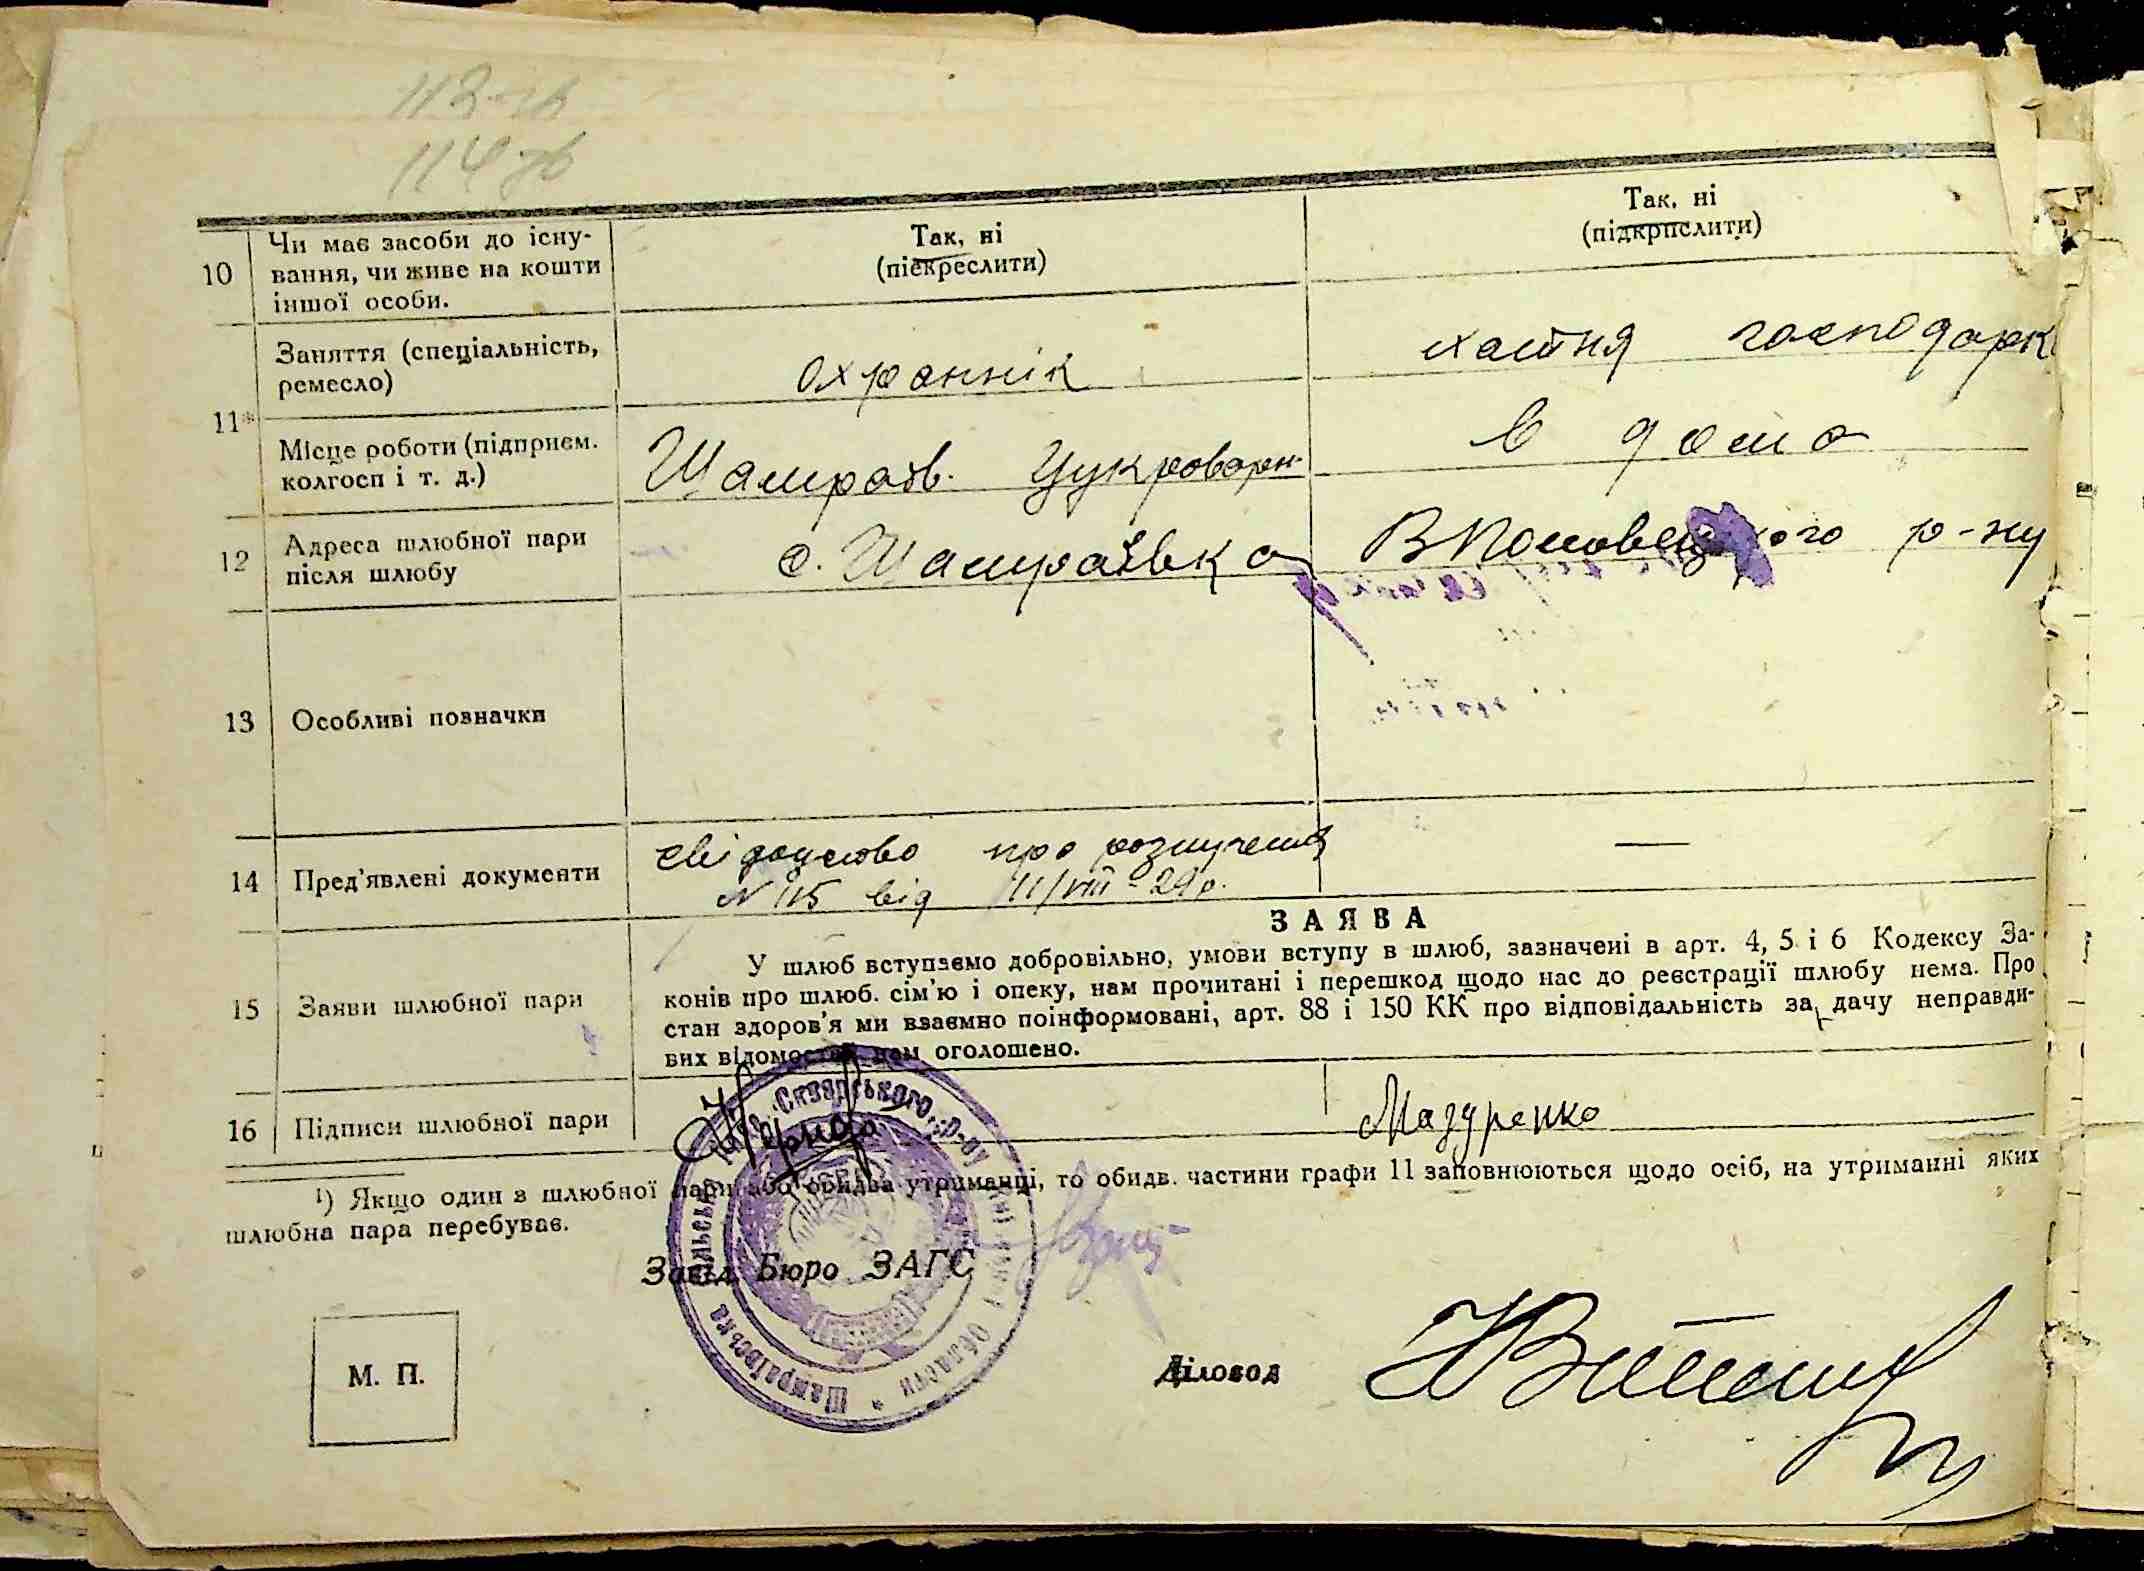 114 зв
10
Чи має засоби до існу-
вання, чи живе на кошти
іншої особи.
Так, ні
(піекреслити)
Так, ні
(підкрпслити)
11*
Заняття (спеціальність,
ремесло)
охраннік
хатня господарк
Місце роботи (підприєм.
колгосп і т. д.)
Шамраїв. Цукроварн.
в дома
12
Адреса шлюбної пари
після шлюбу
с. Шамраївка
р-ну
13
Особливі позначки
14
Пред'явлені документи
свідоцтво про розлучення
N 115 від 11/VIII-29р.
—
15
Заяви шлюбної пари
ЗАЯВА
У шлюб вступаємо добровільно, умови вступу в шлюб, зазначені в арт. 4, 5 і 6 Кодексу За-
конів про шлюб. сім'ю і опеку, нам прочитані і перешкод щодо нас до реєстрації шлюбу нема. Про
стан здоров'я ми взаємно поінформовані, арт. 88 і 150 КК про відповідальність за дачу неправди-
вих відомостей нам оголошено.
16
Підписи шлюбної пари
Мазуренко
¹) Якщо один з шлюбної пари або обидва утриманці, то обидв. частини графи 11 заповнюються щодо осіб, на утриманні яких
шлюбна пара перебуває.
Завід. Бюро ЗАГС
Шамраївська сільська рада Сквирського р-ну Київської області
М. П.
Діловод